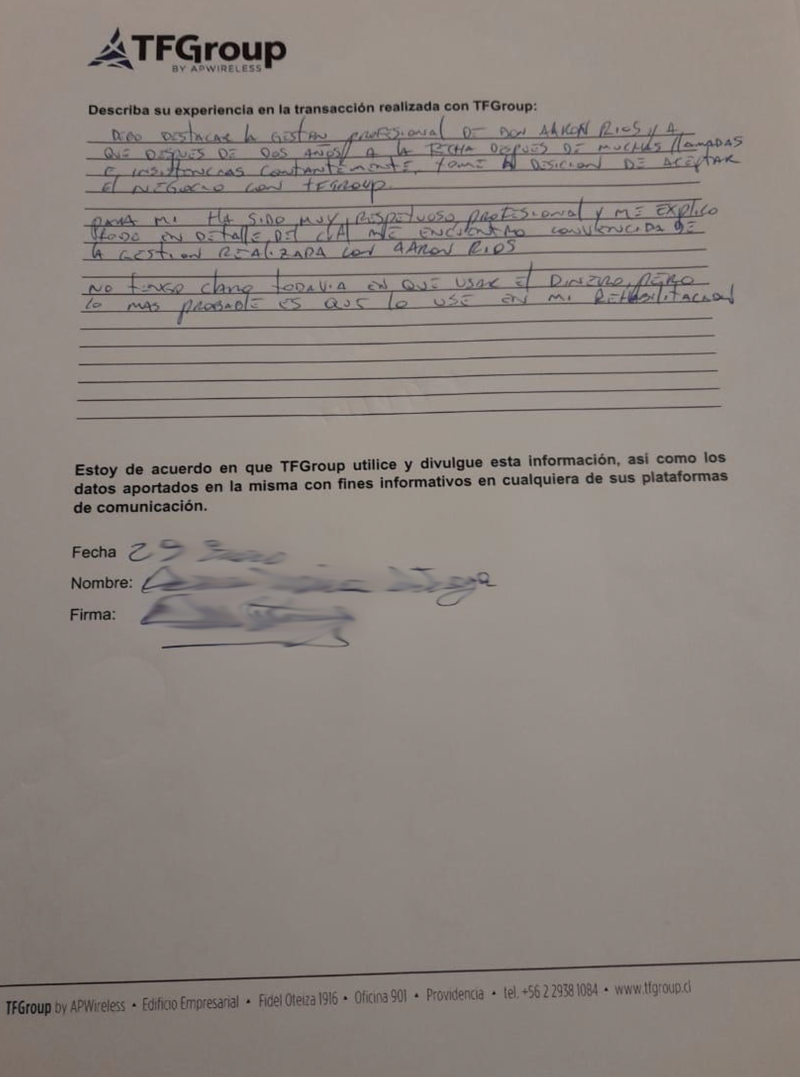 TFGroup
BY APWIRELESS
Describa su experiencia en la transacción realizada con TFGroup:
DEBO DESTACAR LA GESTIÓN PROFESIONAL DE DON AARON RIOS Y A
QUE DESPUES DE DOS AÑOS A LA FECHA DESPUES DE MUCHAS LLAMADAS
E INSISTENCIAS CONTANTEMENTE, TOME LA DESICION DE ACEPTAR
EL NEGOCIO CON TFGROUP.
PARA MI HA SIDO MUY RESPETUOSO, PROFESIONAL Y ME EXPLICO
TODO EN DETALLE DEL CUAL ME ENCUENTRO CONVENCIDA DE
LA GESTION REALIZADA CON AARON RIOS
NO TENGO CLARO TODAVIA EN QUE USAR EL DINERO, PERO
LO MAS PROBABLE ES QUE LO USE EN MI REHABILITACION
Estoy de acuerdo en que TFGroup utilice y divulgue esta información, asi como los
datos aportados en la misma con fines informativos en cualquiera de sus plataformas
de comunicación.
Fecha 29
Nombre:
Firma:
TFGroup by APWireless • Edificio Empresarial • Fidel Oteiza 1916 • Oficina 901 • Providencia • tel. +56 2 2938 1084 • www.tfgroup.cl